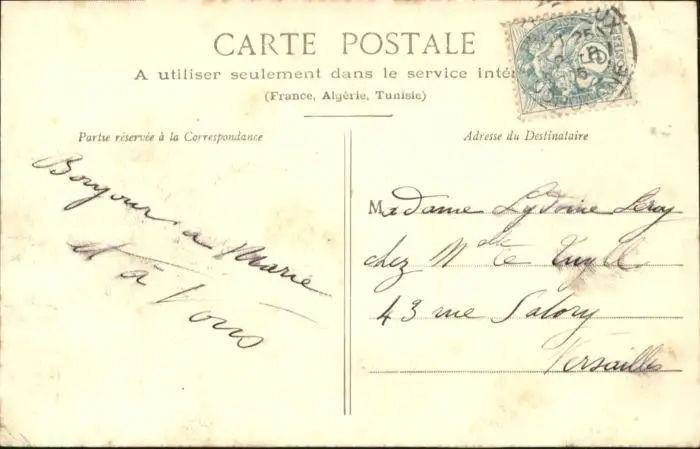 CARTE POSTALE
A utiliser seulement dans le service inté
(France, Algérie, Tunisie)
Partie réservée à la Correspondance
Adresse du Destinataire
Bonjour a Marie
et à Vous
Madame Lydoine Leroy
chez Mdlle
43 rue Satory
Versailles